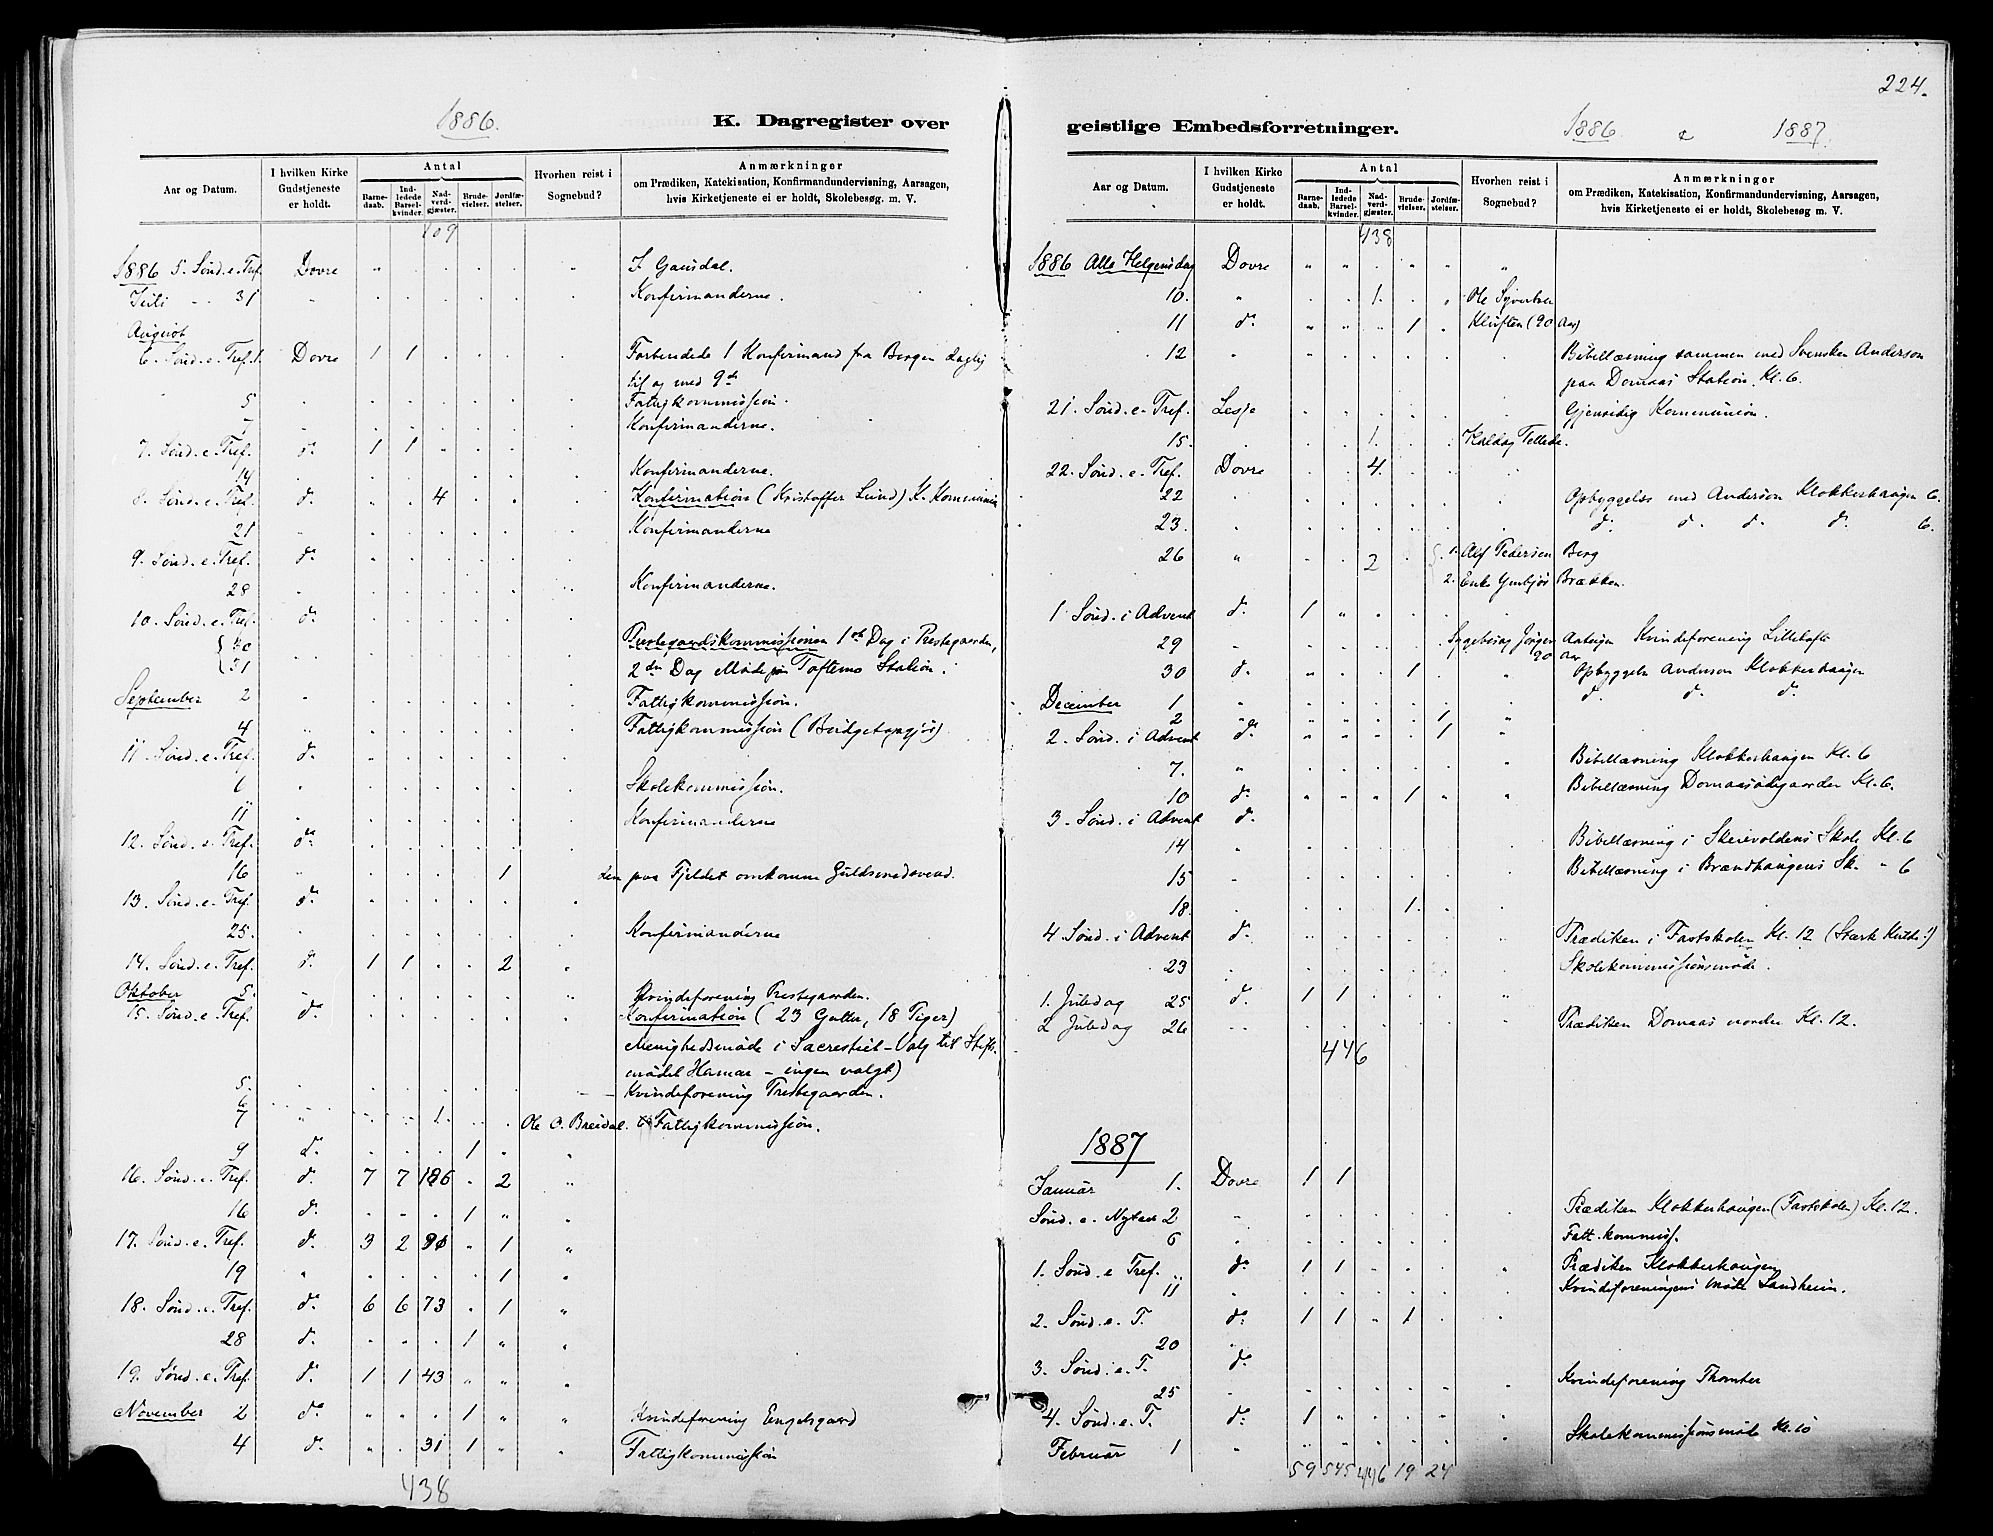 224.
1886.
K. Dagregister over
Aar og Datum.
I hvilken Kirke Gudstjeneste er holdt.
Antal
Barnedaab.
Indledede Barselkvinder.
Nadverdgjæster.
Brudevielser.
Jordfæstelser.
Hvorhen reist i Sognebud?
Anmærkninger
om Prædiken, Katekisation, Konfirmandundervisning, Aarsagen,
hvis Kirketjeneste ei er holdt, Skolebesøg. m. V.
109
1886 5. Sønd. e. Tref. Dovre " . . . . " I Gausdal.
Juli 31 " Konfirmanderne.
August
6. Sønd. e. Tref. 1. Dovre 1 1 Forberedede 1 Konfirmand fra Bergen daglig
til og med 9de
5 Fattigkommission.
7 Konfirmanderne.
7. Sønd. e. Tref. do 1 1
14 Konfirmanderne.
8. Sønd. e. Tref. do 4 Konfirmation (Kristoffer Lund) K. Kommunion
21 Konfirmanderne
9. Sønd. e. Tref. do
28 Konfirmanderne.
10. Sønd. e. Tref. do
30 Prestegaardskommissionen 1ste Dag i Prestegaarden,
31 2den Dag Møde paa Toftemo Station.
September 2 Fattigkommission.
4 Fattigkommission (Budgetopgjør)
11. Sønd. e. Tref. do
6 Skolekommission.
11 Konfirmanderne
12. Sønd. e. Tref. do
16 1 den paa Fjeldet omkomne Guldsmedsvend.
13. Sønd. e. Tref. do
25. Konfirmanderne
14. Sønd. e. Tref. do 1 1 2
Oktober 5. Kvindeforening Prestegaarden.
15. Sønd. e. Tref. do Konfirmation (23 Gutter, 18 Piger)
Menighedsmøde i Sacrestiet - Valg til Stifts
mødet Hamar - ingen valgt)
5. Kvindeforening Prestegaarden.
6
7 1. Ole O. Breidal. Fattigkommission.
9 do 1
16. Sønd. e. Tref. do 7 7 186 2
16 do 1
17. Sønd. e. Tref. do 3 2 1
19 1
18. Sønd. e. Tref. do 6 6 73 1
28 do 1
19. Sønd. e. Tref. do 1 1 43
November 2 do 1 Kvindeforening Engelsgaard
4 do 31 1 Fattigkommission
438
geistlige Embedsforretninger.
1886. & 1887.
Aar og Datum.
I hvilken Kirke Gudstjeneste er holdt.
Antal
Barnedaab.
Indledede Barselkvinder.
Nadverdgjæster.
Brudevielser.
Jordfæstelser.
Hvorhen reist i Sognebud?
Anmærkninger
om Prædiken, Katekisation, Konfirmandundervisning, Aarsagen,
hvis Kirketjeneste ei er holdt, Skolebesøg m. V.
438
1886 Alle Helgensdag Dovre
10. 1. Ole Syvertsen
11 do 1 Kluften (90 Aar)
12 Bibellæsning sammen med Svensken Anderson
paa Domaas Station. Kl. 6.
21. Sønd. e. Tref. Lesje Gjensidig Kommunion.
15. 1.
22. Sønd. e. Tref. Dovre 4.
22 Opbyggelse med Anderson Klokkerhaugen 6.
23. do do do do 6.
26 2 1. Alf Pedersen Berg
2. Enke Brækken.
1 Sønd. i Advent do 1
29 Sygebesøg Jørgen Kvindeforening Lilletofte
90 Aar
30 do 1 Opbyggelse Anderson Klokkerhaugen
December 1 do do do
2 1
2. Sønd. i Advent do 1
7. Bibellæsning Klokkerhaugen Kl. 6
10 do 1 Bibellæsning Domaasødegaarden Kl. 6.
3. Sønd. i Advent do
14 Bibellæsning i Skeievoldens Skole Kl. 6
15 Bibellæsning i Brændhaugens Sk. " 6
18. 1.
4 Sønd. i Advent do Prædiken i Fastskolen Kl. 12 (Stærk Kulde!)
23 Skolekommissionsmøde.
1. Juledag 25 do 1 1
2 Juledag 26 Prædiken Domaas nordre Kl. 12.
446
1887
Januar 1. Dovre 1 1
Sønd. e. Nytaar 2 Prædiken Klokkerhaugen (Fastskolen) Kl. 12.
6 Fatt. kommiss.
1. Sønd. e Tref. do 1 1 Prædiken Klokkerhaugen
11 Kvindeforeningens Møde Landheim.
2. Sønd. e. T. do 1 1 1
20
3. Sønd. e. T. do
25 Kvindeforening Thomter
4. Sønd. e. T. do 1
Februar 1 Skolekommissionsmøde Kl. 10
59 545 446 19 24